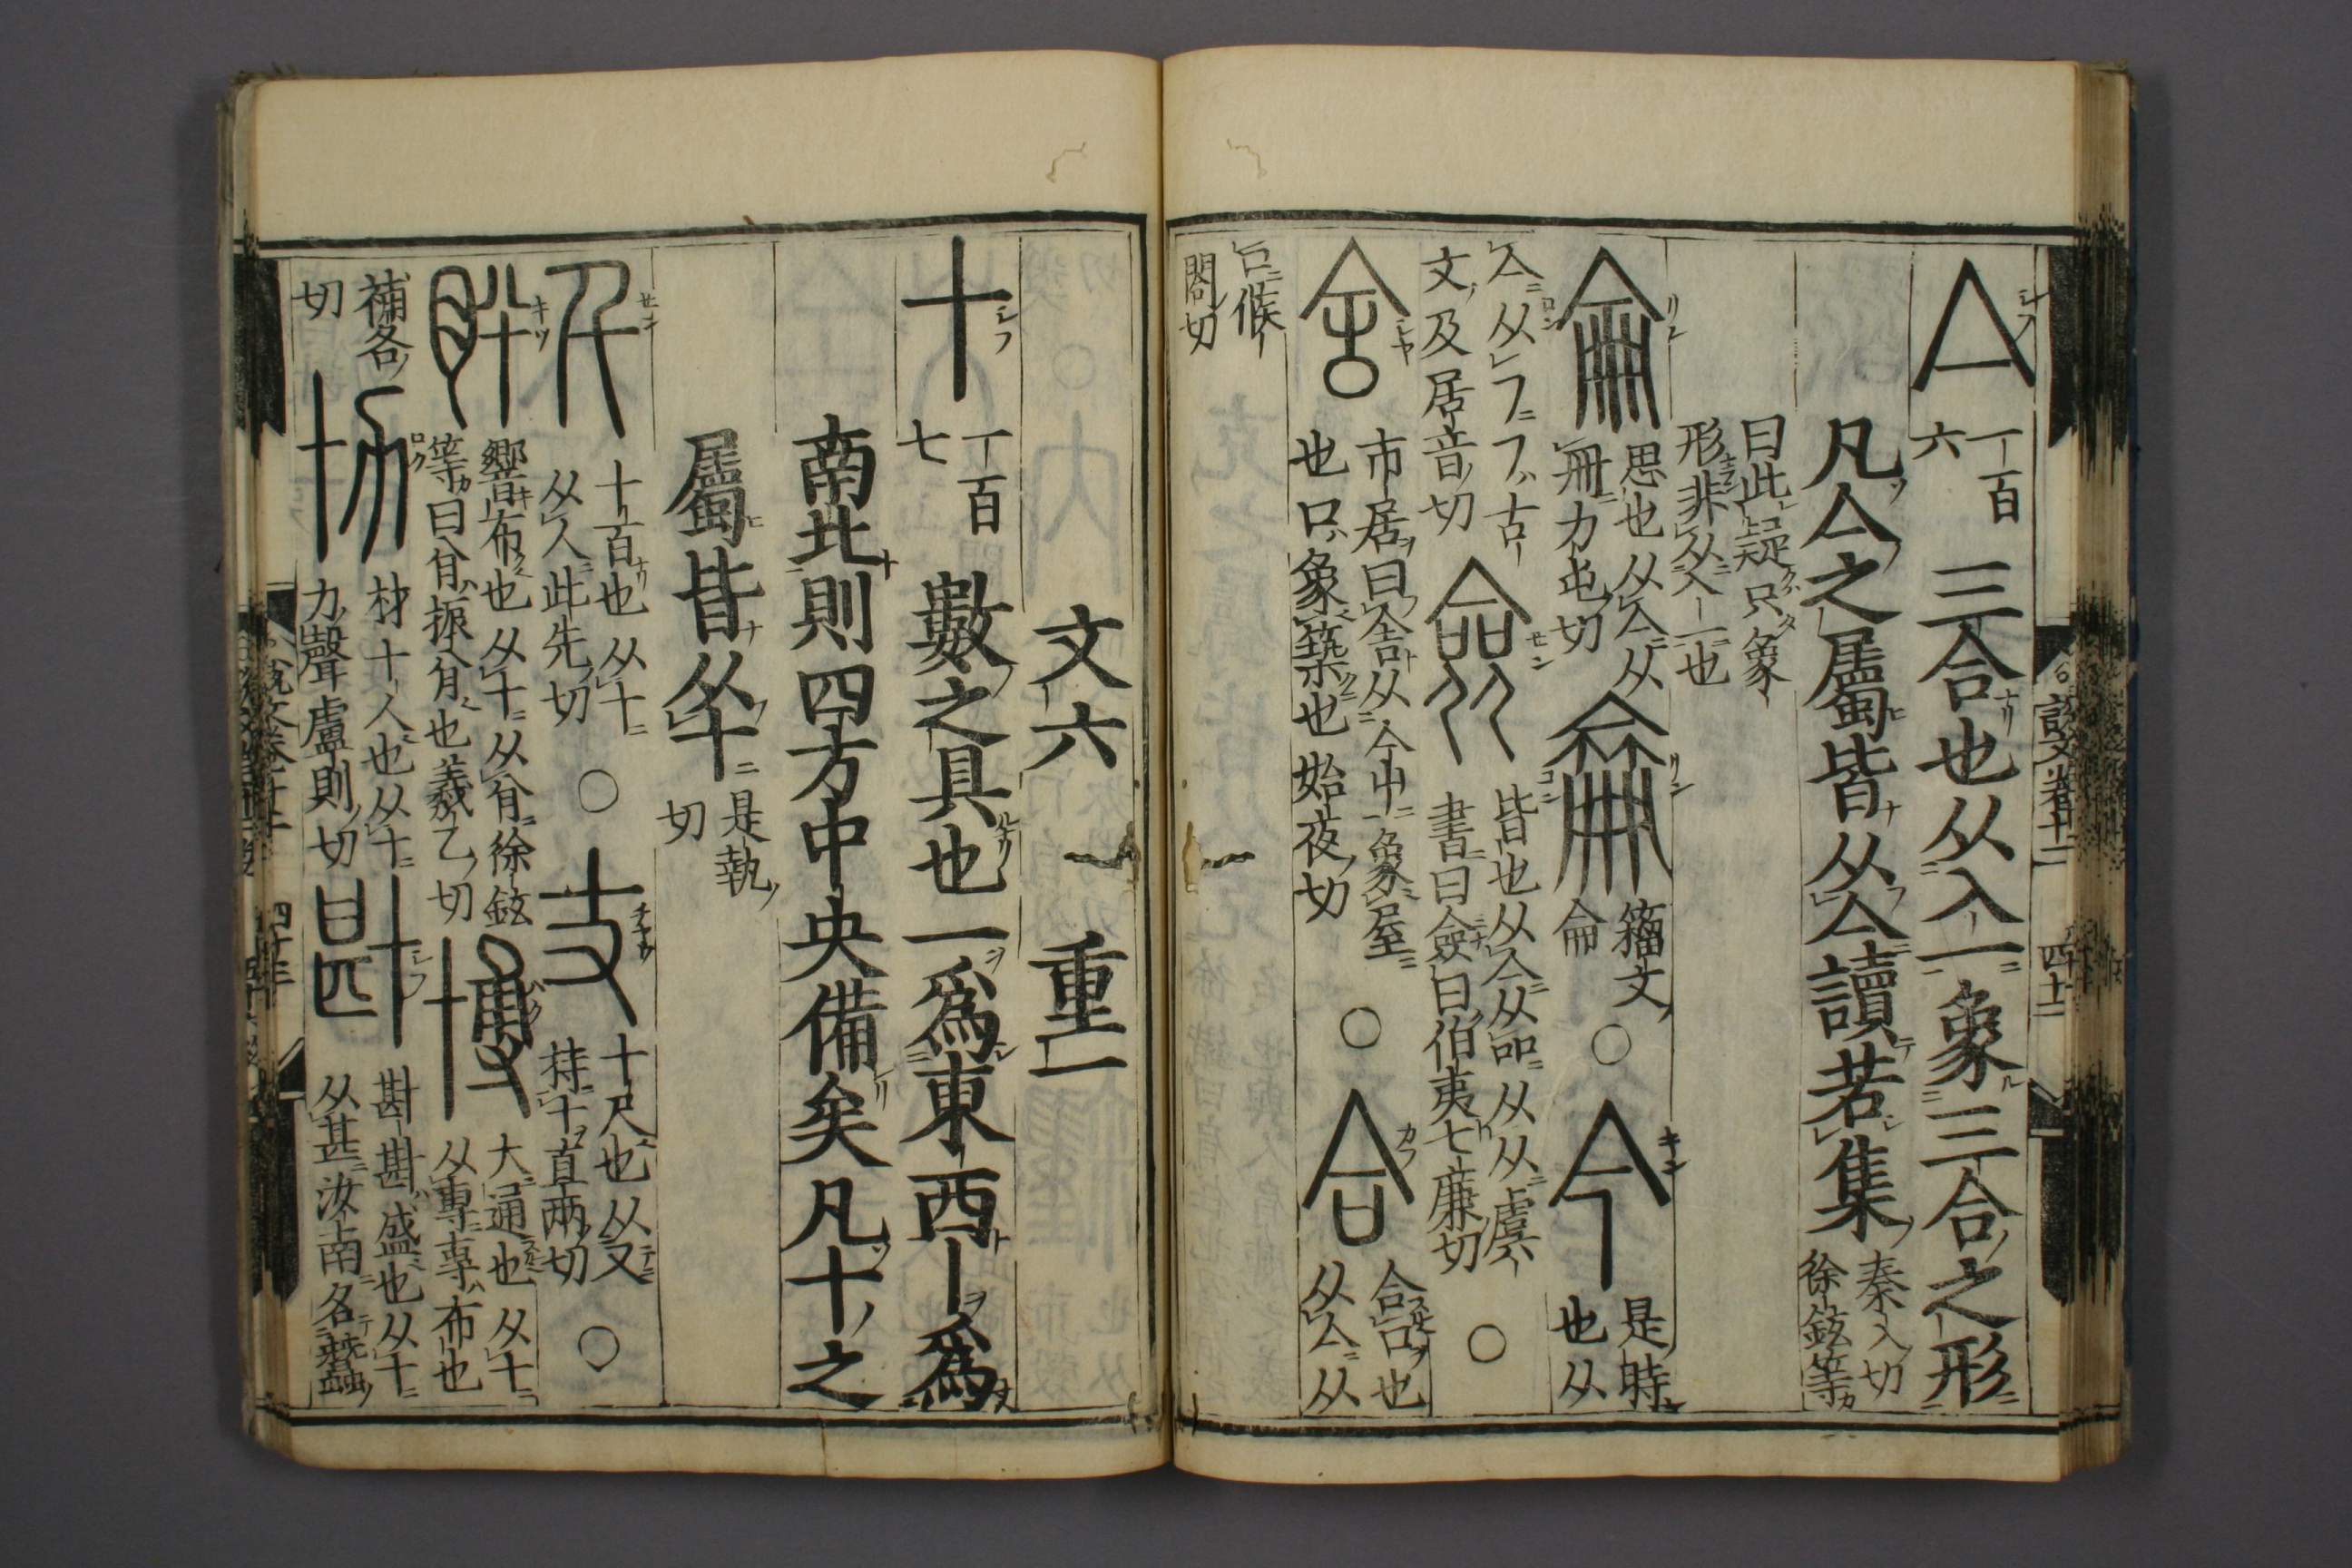 亼 一百六 三合也从入一象三合之形
凡亼之屬皆从亼讀若集 秦入切 徐鉉等
曰此疑只象
形非从入一也
侖 思也从亼从
冊力屯切 籒文
侖 ○ 今 是時
也从
亼从フフ古
文及居音切 僉 皆也从亼从吅从从虞
書曰僉曰伯夷七廉切 ○
舍 市居曰舍从亼中象屋
也口象築也始夜切 ○ 合 合口也
从亼从
口𠋫
閤切
文六 重一
十 一百七 數之具也一爲東西丨爲
南北則四方中央備矣凡十之
屬皆从十 是執
切
千 十百也从十
从人此先切 ○ 丈 十尺也从又
持十直兩切 ○
肸 響布也从十从㐆徐鉉
等曰㐆振㐆也羲乙切 博 大通也从十
从尃尃布也
補各
切 材十人也从十
力聲盧則切 斟斟盛也从十
从甚汝南名蠶
說文卷十二 四十二